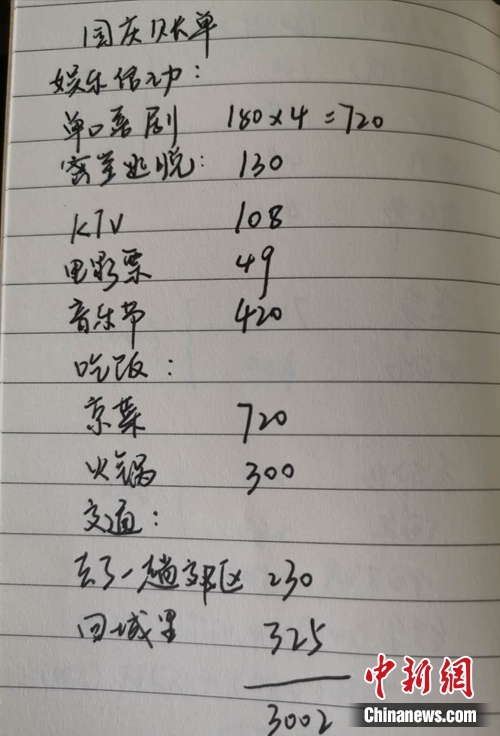 国庆账单
娱乐活动：
单口喜剧 180×4=720
密室逃脱： 130
KTV 108
电影票 49
音乐节 420
吃饭：
京菜 720
火锅 300
交通：
去了一趟郊区 230
回城里 325
3002
中新网
Chinanews.com